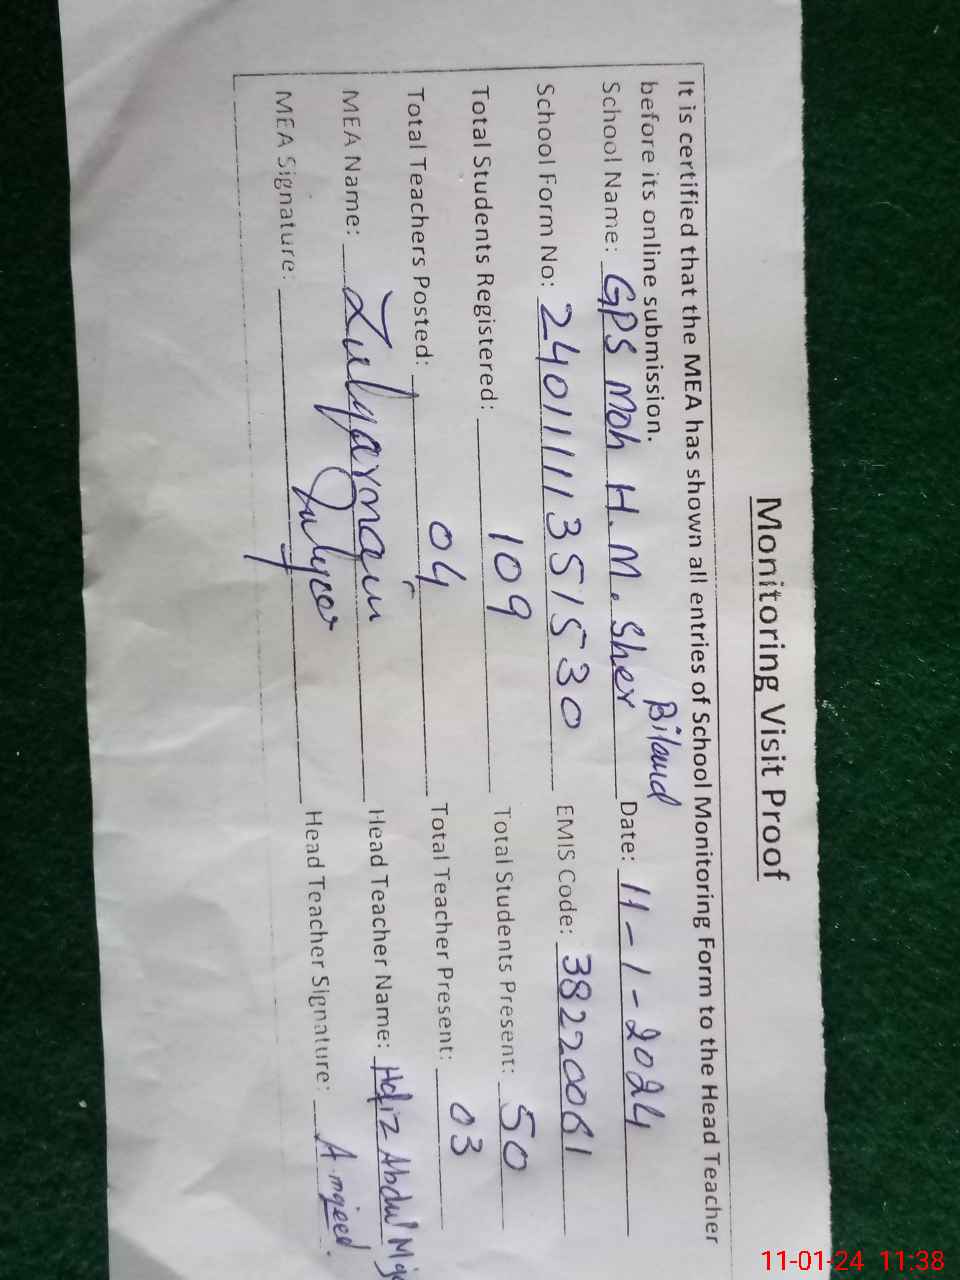 Monitoring Visit Proof
It is certified that the MEA has shown all entries of School Monitoring Form to the Head Teacher
before its online submission.
School Name: GPS Moh H. M. Sher Biland Date: 11-1-2024
School Form No: 24011113515530 EMIS Code: 38220061
Total Students Registered: 109 Total Students Present: 50
Total Teachers Posted: 04 Total Teacher Present: 03
MEA Name: Head Teacher Name: Hafiz Abdul
MEA Signature: Head Teacher Signature: A. mjeed.
11-01-24 11:38